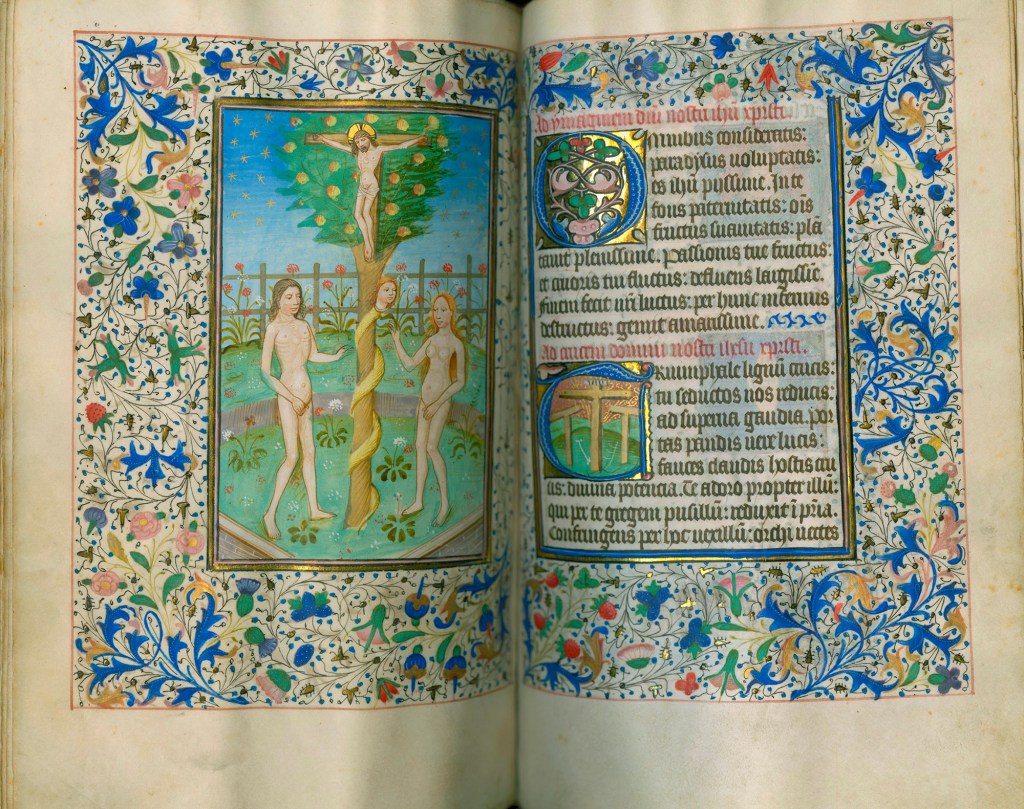 Ad ymaginem dni nostri ihū xpristi
Omnibus consideratis:
paradysus uoluptatis:
es ihū pyssime. In te
fons paternitatis: ois
fructus suauitatis: plā
tauit plenissime. Passionis tue fructus
et cruoris tui fluctus: defluens largissīe.
Finem fecit nrī luctus: per hunc infernus
destructus: gemit amarissime.
Ad crucem domini nostri ihesu xpristi.
Triumphale lignū crucis:
tu seductos nos reducis:
ad superna gaudia por
tas pandis uere lucis:
fauces claudis hostis cru
cis: diuina potencia. Te adoro propter illū:
qui per te gregem pusillū: reduxit ī pria.
Confringens per hoc uexillū: orchi uectes